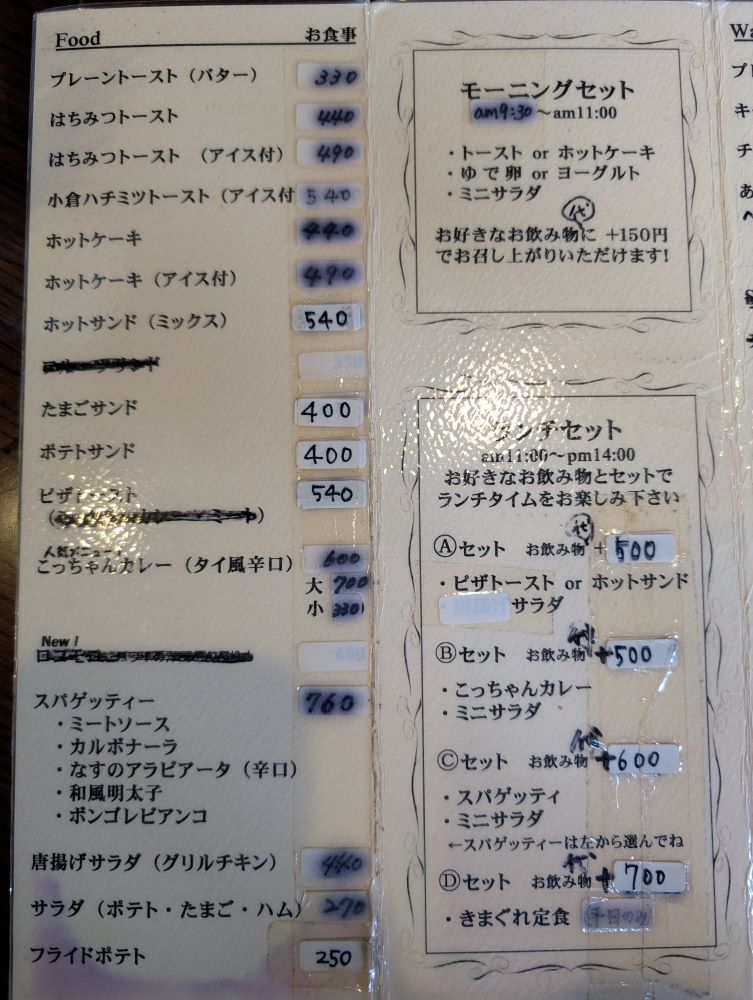 Food お食事
プレーントースト（バター） 330
はちみつトースト 440
はちみつトースト （アイス付） 490
小倉ハチミツトースト（アイス付 540
ホットケーキ 440
ホットケーキ（アイス付） 490
ホットサンド（ミックス） 540
たまごサンド 400
ポテトサンド 400
ピザトースト 540
人気メニュー！
こっちゃんカレー（タイ風辛口） 600
大 700
小 330
New！
スパゲッティー 760
・ミートソース
・カルボナーラ
・なすのアラビアータ（辛口）
・和風明太子
・ボンゴレビアンコ
唐揚げサラダ（グリルチキン） 440
サラダ（ポテト・たまご・ハム） 270
フライドポテト 250
モーニングセット
am9:30～am11:00
・トースト or ホットケーキ
・ゆで卵 or ヨーグルト
・ミニサラダ
代
お好きなお飲み物に +150円
でお召し上がりいただけます!
ランチセット
am11:00～pm14:00
お好きなお飲み物とセットで
ランチタイムをお楽しみ下さい
Ⓐセット お飲み物代 + 500
・ピザトースト or ホットサンド
・ サラダ
Ⓑセット お飲み物代 +500
・こっちゃんカレー
・ミニサラダ
Ⓒセット お飲み物代 +600
・スパゲッティ
・ミニサラダ
←スパゲッティーは左から選んでね
Ⓓセット お飲み物代 + 700
・きまぐれ定食 (平日のみ)